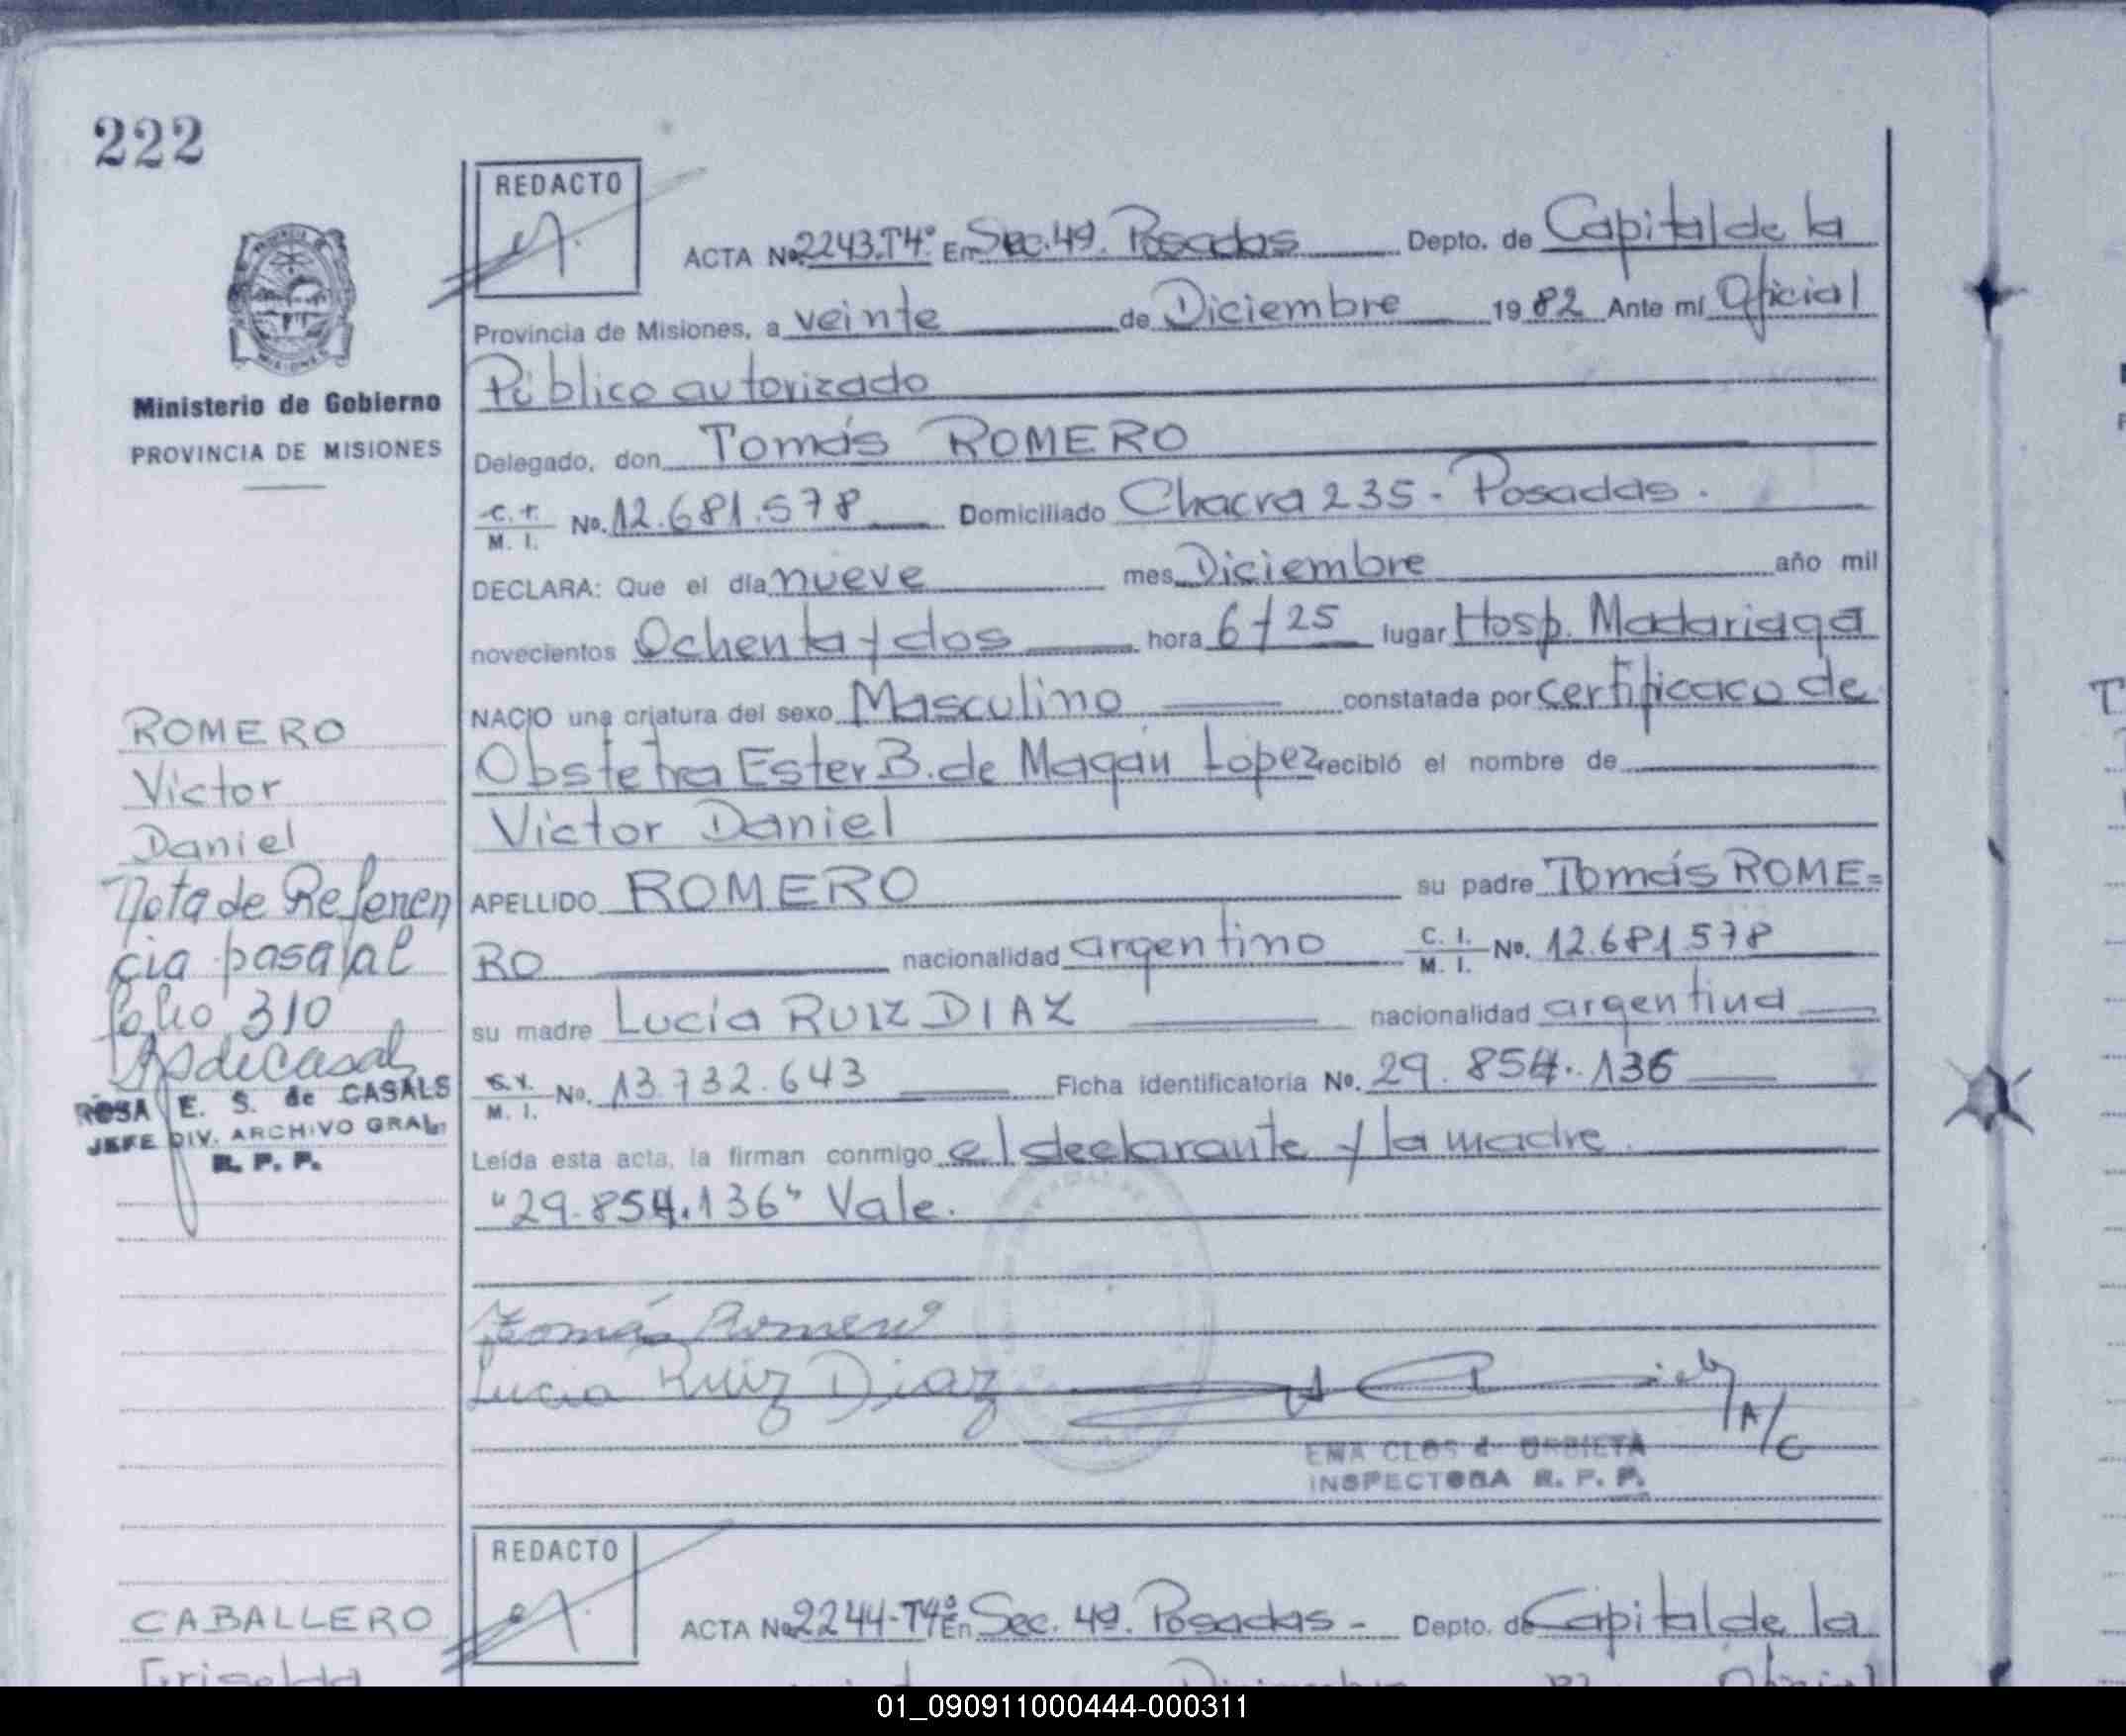 222
REDACTO
ACTA Nº 2243.T4º En Sec. 4ª. Posadas Depto. de Capital de la
Provincia de Misiones, a veinte de Diciembre 1982 Ante mí Oficial
Público autorizado
Delegado, don Tomás ROMERO
C. I. M. I. No. 12.681.578 Domiciliado Chacra 235 - Posadas.
DECLARA: Que el día nueve mes Diciembre año mil
novecientos Ochenta y dos hora 6 y 25 lugar Hosp. Madariaga
NACIO una criatura del sexo Masculino constatada por certificaco de
Obstetra Ester B. de Magán Lopez recibió el nombre de
Victor Daniel
APELLIDO ROMERO su padre Tomás ROME=
RO nacionalidad argentino C. I. M. I. No. 12.681578
su madre Lucía RUIZ DIAZ nacionalidad argentina
M. I. No. 13.732.643 Ficha identificatoria No. 29.854.136
Leída esta acta, la firman conmigo el declarante y la madre.
"29.854.136" Vale.
Tomás Romero
Lucia Ruiz Diaz
A/C
EMA CLOS d URBIETA
INSPECTORA R. P. P.
PROVINCIA DE
MISIONES
Ministerio de Gobierno
PROVINCIA DE MISIONES
ROMERO
Victor
Daniel
Nota de Referen
cia pasa al
folio 310
ROSA E. S. de CASALS
JEFE DIV. ARCHIVO GRAL.
R. P. P.
REDACTO
ACTA Nº 2244-T4º En Sec. 4ª. Posadas - Depto. de Capital de la
CABALLERO
Griselda
01_090911000444-000311